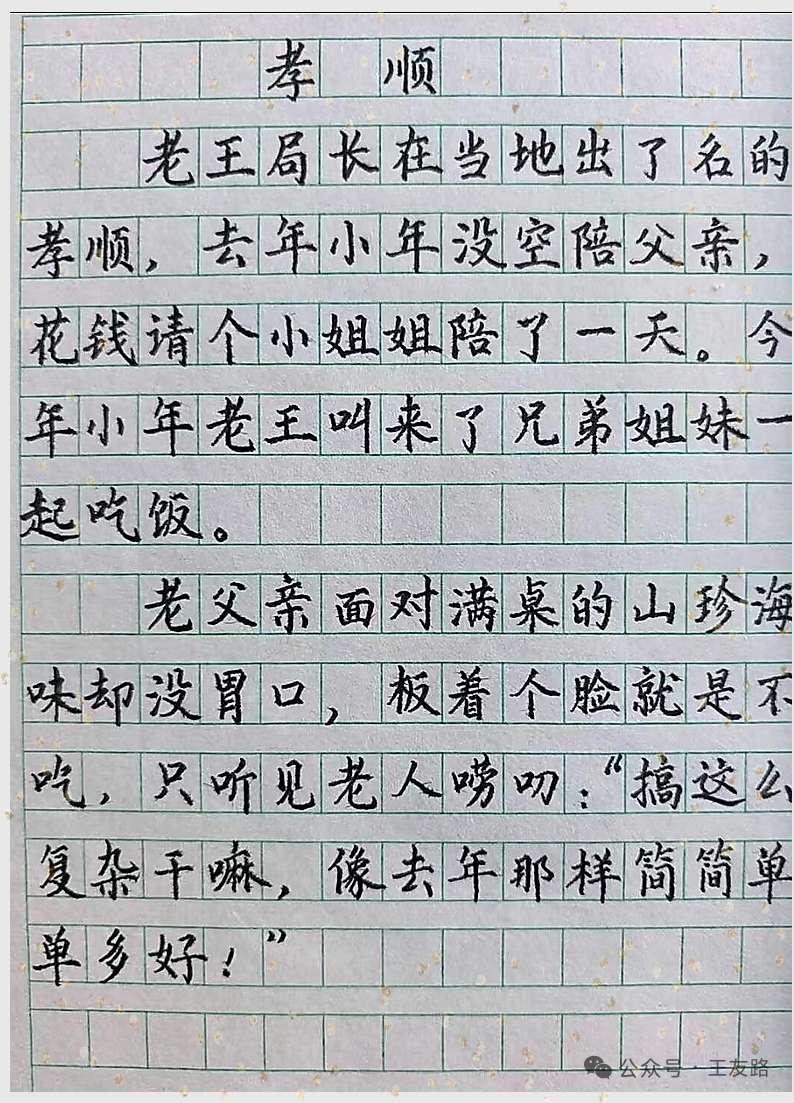 孝 顺
老王局长在当地出了名的
孝顺，去年小年没空陪父亲，
花钱请个小姐姐陪了一天。今
年小年老王叫来了兄弟姐妹一
起吃饭。
老父亲面对满桌的山珍海
味却没胃口，板着个脸就是不
吃，只听见老人唠叨：“搞这么
复杂干嘛，像去年那样简简单
单多好！”
公众号·王友路